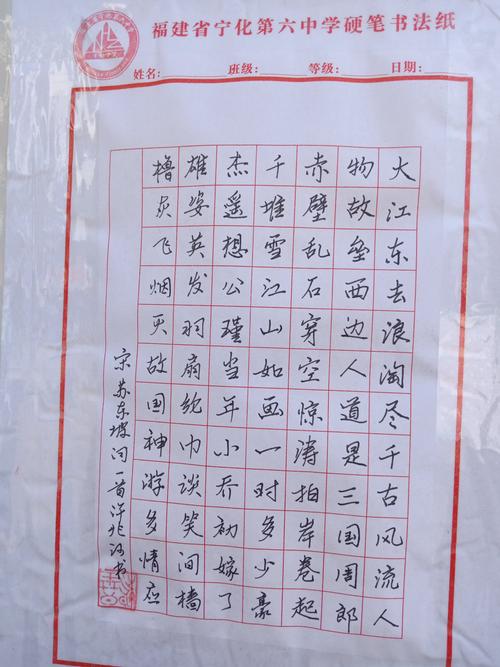 福建省宁化第六中学硬笔书法纸
姓名: 班级: 等级: 日期:
大江东去浪淘尽千古风流人
物故垒西边人道是三国周郎
赤壁乱石穿空惊涛拍岸卷起
千堆雪江山如画一时多少豪
杰遥想公瑾当年小乔初嫁了
雄姿英发羽扇纶巾谈笑间樯
橹灰飞烟灭故国神游多情应
宋苏东坡词一首 书